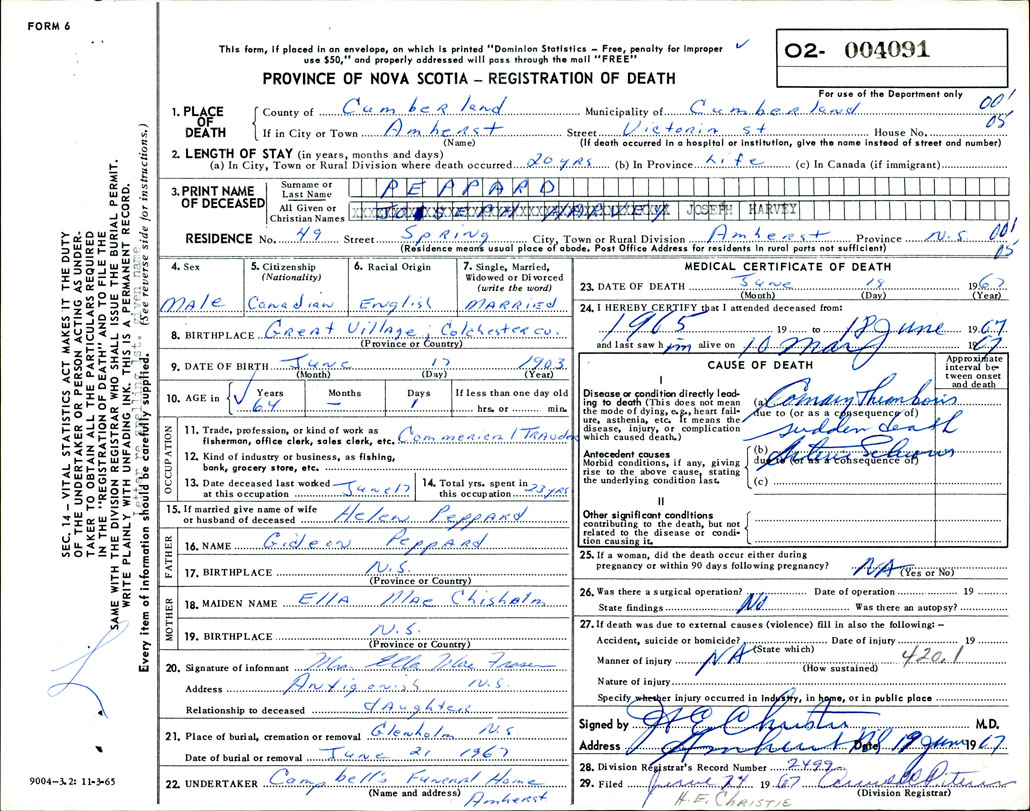 FORM 6
This form, if placed in an envelope, on which is printed "Dominion Statistics – Free, penalty for improper
use $50," and properly addressed will pass through the mail "FREE"
O2- 004091
PROVINCE OF NOVA SCOTIA – REGISTRATION OF DEATH
For use of the Department only
1. PLACE OF DEATH County of Cumberland Municipality of Cumberland 001
If in City or Town Amherst Street Victoria St House No. 05
(Name) (If death occurred in a hospital or institution, give the name instead of street and number)
2. LENGTH OF STAY (in years, months and days)
(a) In City, Town or Rural Division where death occurred 20 yrs (b) In Province Life (c) In Canada (if immigrant)
3. PRINT NAME OF DECEASED Surname or Last Name PEPPARD
All Given or Christian Names JOSEPH HARVEY JOSEPH HARVEY
RESIDENCE No. 49 Street Spring City, Town or Rural Division Amherst Province N.S. 001
(Residence means usual place of abode. Post Office Address for residents in rural parts not sufficient) 05
4. Sex Male
5. Citizenship (Nationality) Canadian
6. Racial Origin English
7. Single, Married, Widowed or Divorced (write the word) MARRIED
8. BIRTHPLACE Great Village, Colchester co.
(Province or Country)
9. DATE OF BIRTH June 17 1903
(Month) (Day) (Year)
10. AGE in Years 64 Months – Days 1 If less than one day old hrs. or min.
OCCUPATION
11. Trade, profession, or kind of work as
fisherman, office clerk, sales clerk, etc.
12. Kind of industry or business, as fishing,
bank, grocery store, etc.
13. Date deceased last worked at this occupation June 17
14. Total yrs. spent in this occupation 23 yrs
15. If married give name of wife or husband of deceased Helen Peppard
FATHER
16. NAME Gideon Peppard
17. BIRTHPLACE N.S.
(Province or Country)
MOTHER
18. MAIDEN NAME Ella Mae Chisholm
19. BIRTHPLACE N.S.
(Province or Country)
20. Signature of informant Mrs. Ella Mae Fraser
Address Antigonish N.S.
Relationship to deceased daughter
21. Place of burial, cremation or removal Glenholm N.S
Date of burial or removal June 21 1967
22. UNDERTAKER Campbell's Funeral Home
(Name and address) Amherst
MEDICAL CERTIFICATE OF DEATH
23. DATE OF DEATH June 18 1967
(Month) (Day) (Year)
24. I HEREBY CERTIFY that I attended deceased from:
1965 19 to 18 June 1967
and last saw him alive on 10 May 1967
CAUSE OF DEATH
Approximate interval between onset and death
I
Disease or condition directly leading to death (This does not mean the mode of dying, e.g., heart failure, asthenia, etc. It means the disease, injury, or complication which caused death.)
(a) Coronary Thrombosis
due to (or as a consequence of)
sudden death
Antecedent causes
Morbid conditions, if any, giving rise to the above cause, stating the underlying condition last.
(b)
due to (or as a consequence of)
(c)
II
Other significant conditions
contributing to the death, but not related to the disease or condition causing it.
25. If a woman, did the death occur either during
pregnancy or within 90 days following pregnancy? NA (Yes or No)
26. Was there a surgical operation? No Date of operation 19
State findings Was there an autopsy?
27. If death was due to external causes (violence) fill in also the following: –
Accident, suicide or homicide? Date of injury 19
(State which)
Manner of injury NA 420.1
(How sustained)
Nature of injury
Specify whether injury occurred in industry, in home, or in public place
Signed by H E Christie M.D.
Address Amherst NS Date 19 June 1967
28. Division Registrar's Record Number 2499
29. Filed June 24 1967
(Division Registrar)
H.E. CHRISTIE
SEC. 14 – VITAL STATISTICS ACT MAKES IT THE DUTY
OF THE UNDERTAKER OR PERSON ACTING AS UNDER-
TAKER TO OBTAIN ALL THE PARTICULARS REQUIRED
IN THE "REGISTRATION OF DEATH" AND TO FILE THE
SAME WITH THE DIVISION REGISTRAR WHO SHALL ISSUE THE BURIAL PERMIT.
WRITE PLAINLY WITH UNFADING INK. THIS IS A PERMANENT RECORD.
Every item of information should be carefully supplied. (See reverse side for instructions.)
9004–3.2: 11-3-65